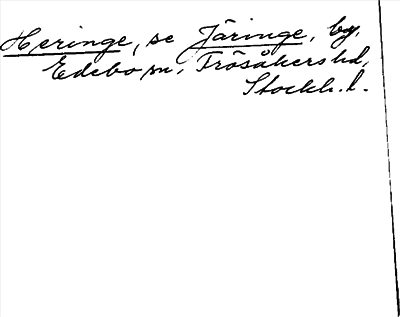 Heringe, se Järinge, by,
Edebo sn, Frösåkers hd,
Stockh. l.